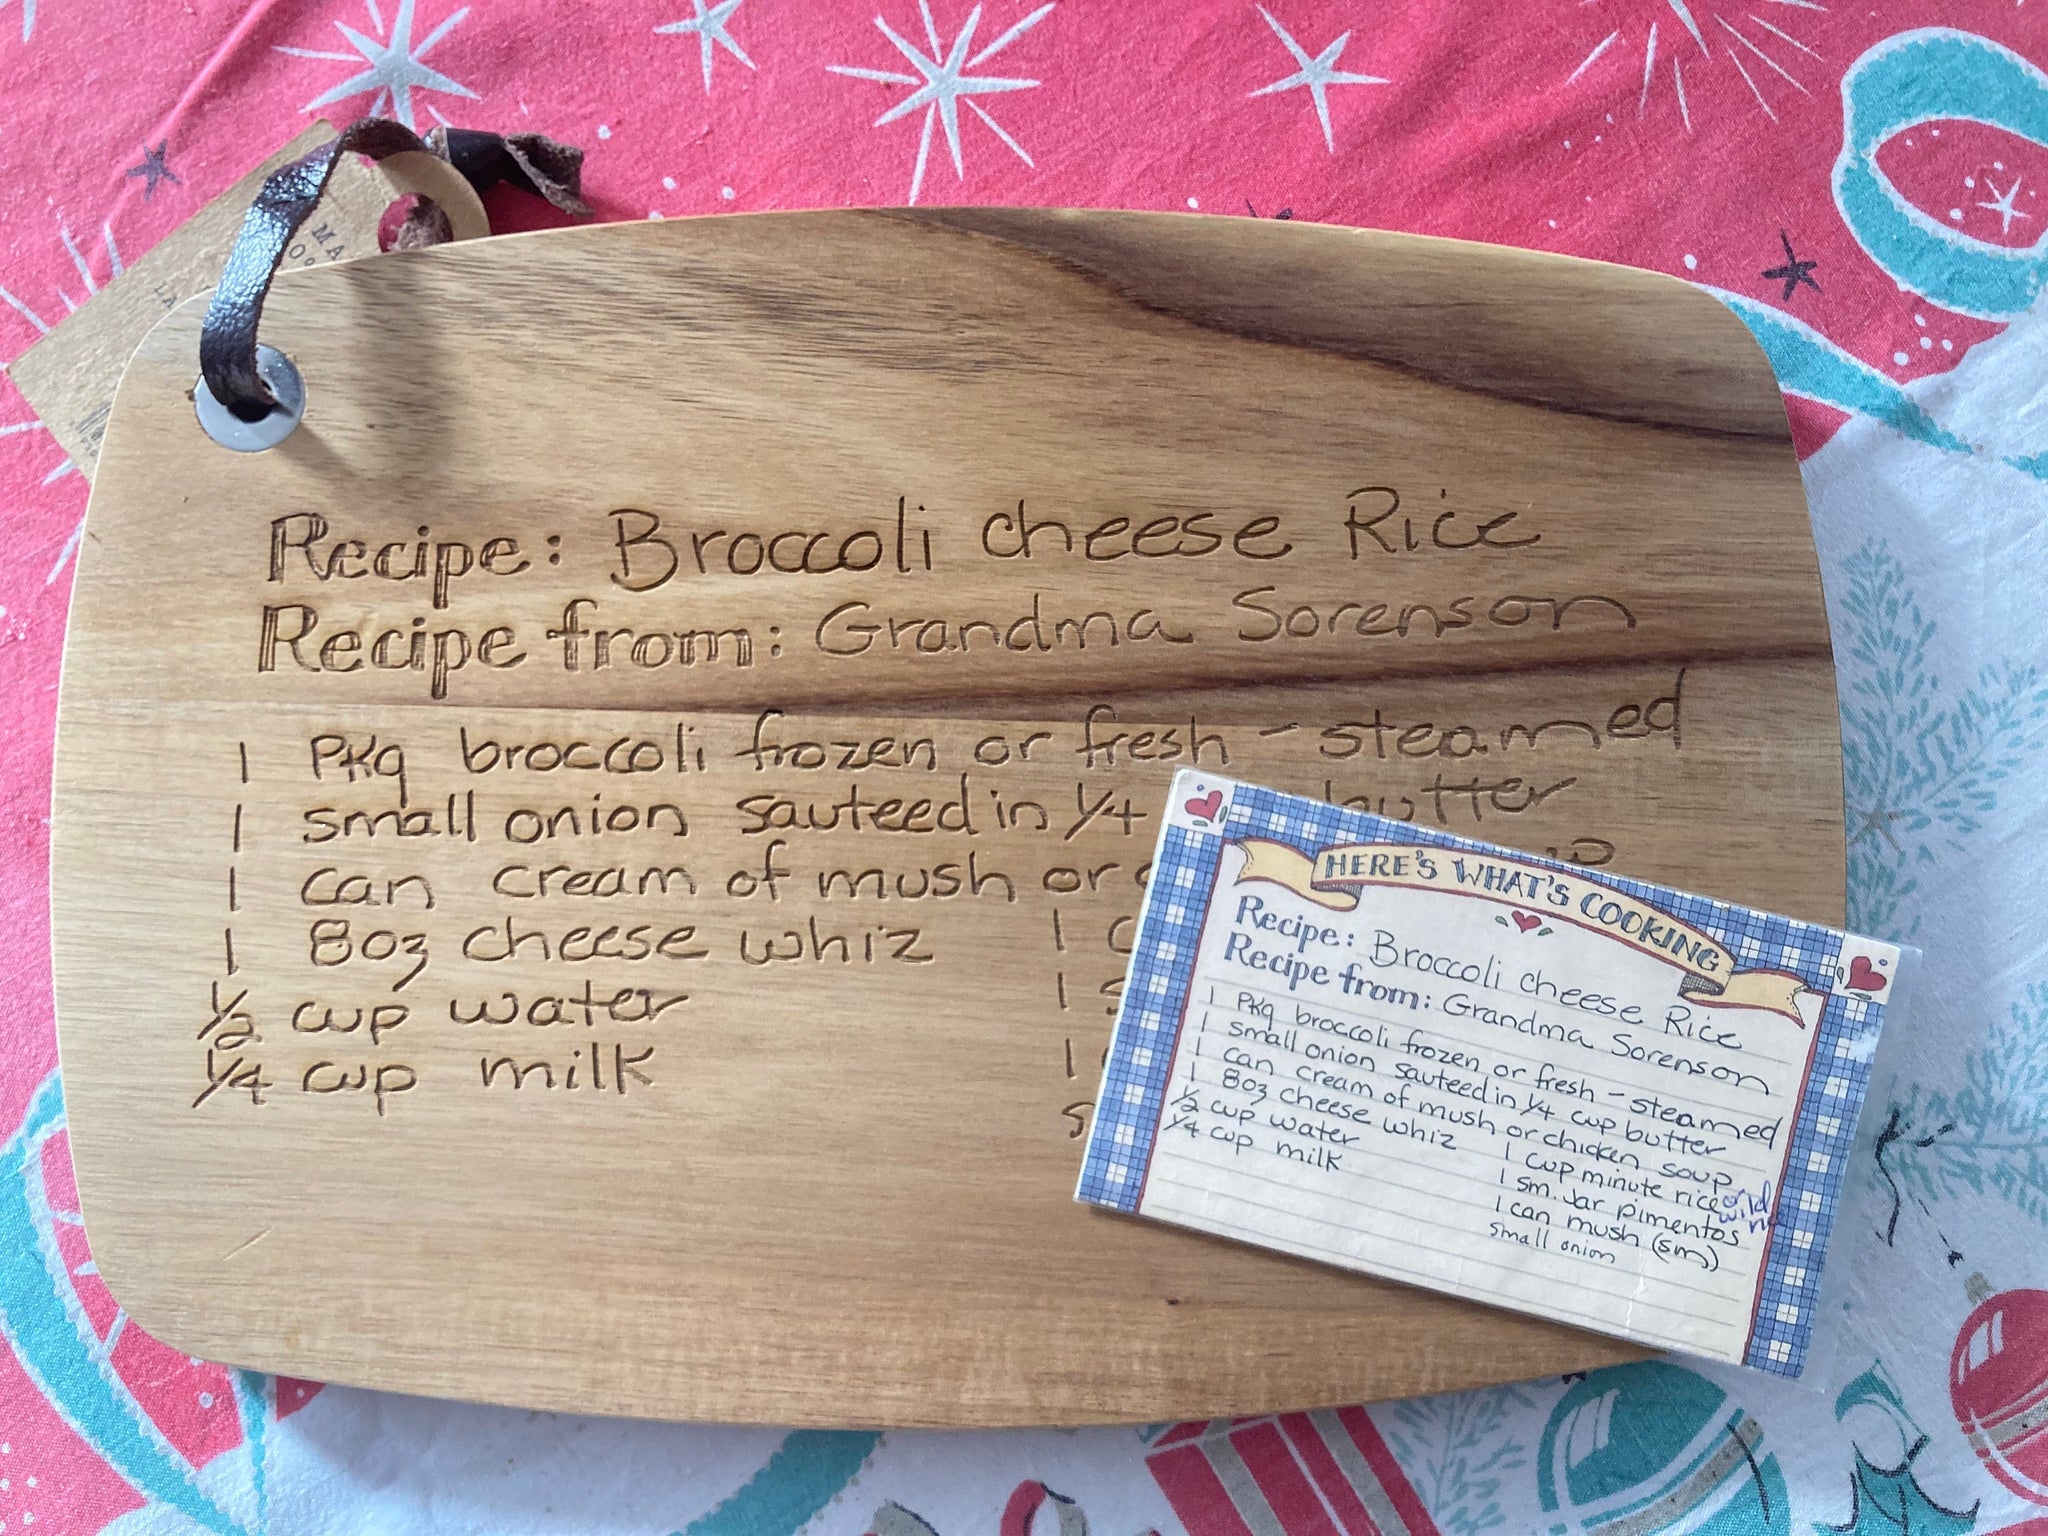 MA
LA
Recipe: Broccoli cheese Rice
Recipe from: Grandma Sorenson
1 pkg broccoli frozen or fresh - steamed
1 small onion sauteed in 1/4 butter
1 can cream of mush or
1 8oz cheese whiz 1
1/2 cup water 1
1/4 cup milk 1
HERE'S WHAT'S COOKING
Recipe: Broccoli cheese Rice
Recipe from: Grandma Sorenson
1 pkg broccoli frozen or fresh - steamed
1 small onion sauteed in 1/4 cup butter
1 can cream of mush or chicken soup
1 8oz cheese whiz 1 cup minute rice or wild
1/2 cup water 1 sm. jar pimentos
1/4 cup milk 1 can mush (sm)
small onion